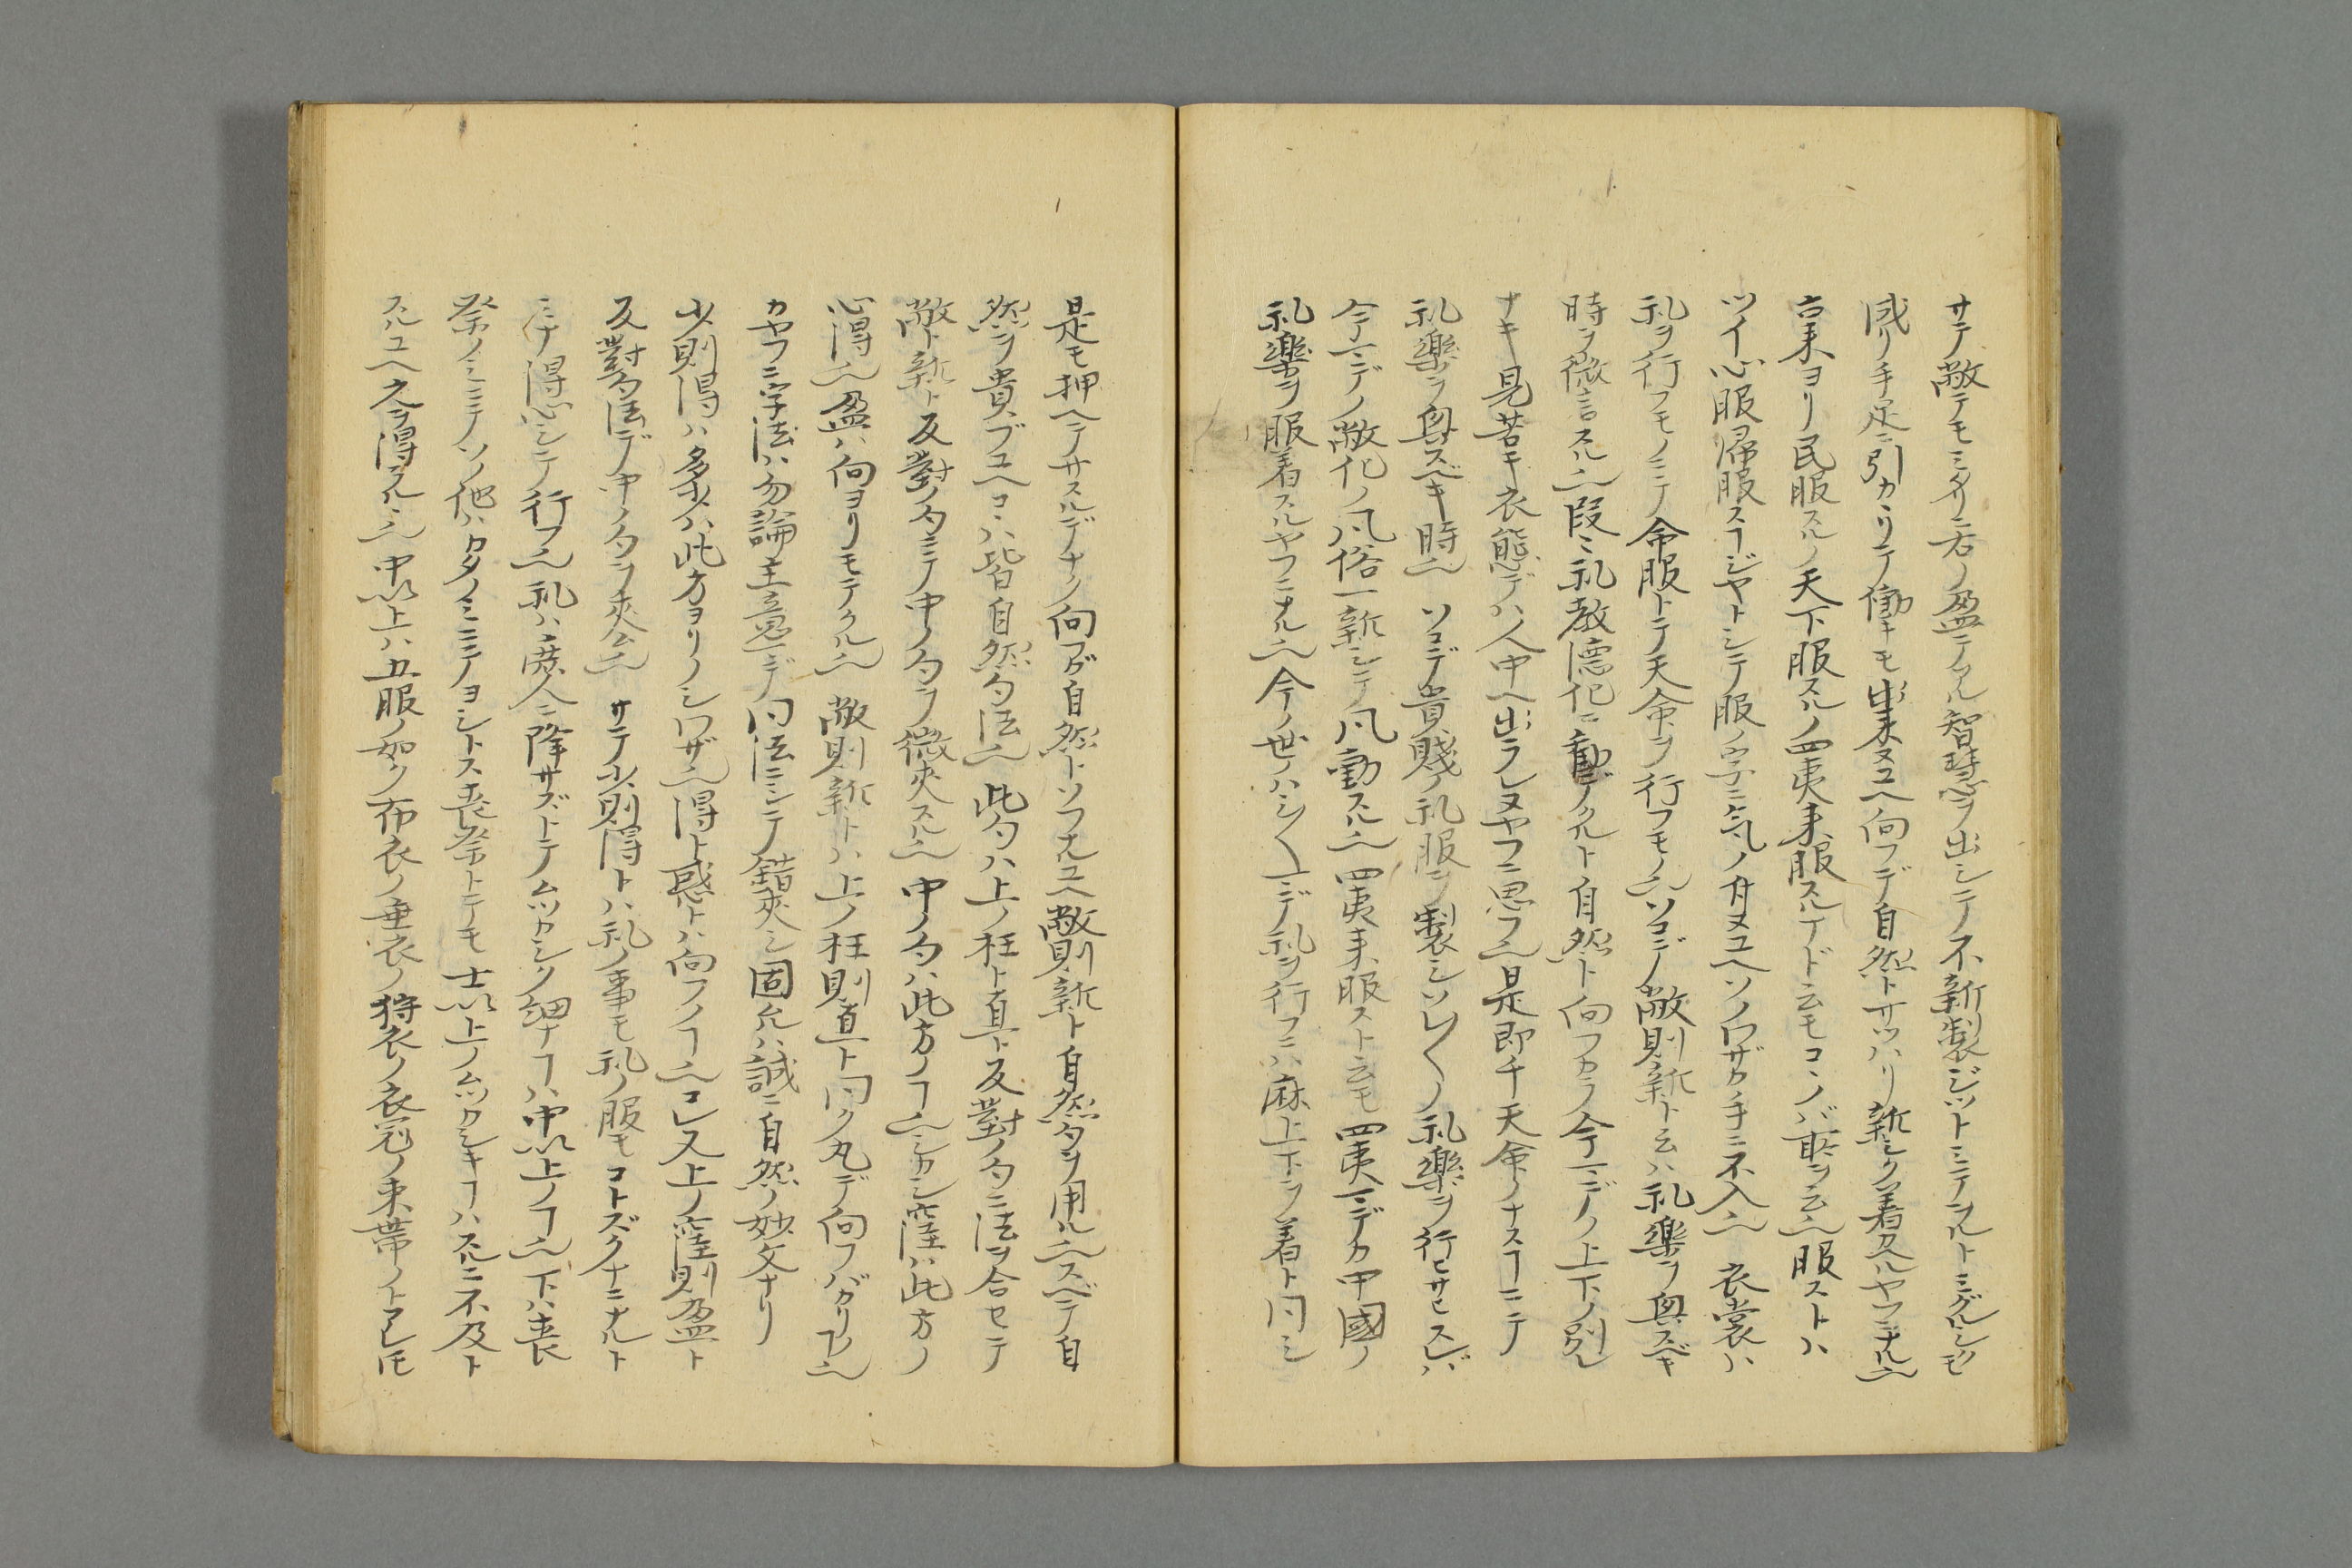 サテ敝テモミタリニ右ノ盈テアル智慧ヲ出シテ不新製ジツトミテヲルトミグルシクモ
成リ手足ニ引カヽリテ働キモ出来ヌユヘ向フデ自然トサツハリ新シク着カヘルヤフニナル也
古来ヨリ民服スルノ天下服スルノ四夷来服スルナドヽ云モコヽノバ所ヲ云也服ストハ
ツイ心服帰服スヿジヤトシテ服ノ字ニ気ノ付ヌユヘソノワザガ手ニ不入也 衣裳ハ
礼ヲ行フモノニテ命服トテ天命ヲ行フモノ也ソコデ敝則新ト云ハ礼樂ヲ興スベキ
時ヲ微言スル也段々礼教徳化ニ動イクルト自然ト向フカラ今マデノ上下ノ別レ
ナキ見苦キ衣態デハ人中ヘ出ラレヌヤフニ思フ也是即チ天命ノナスヿニテ
礼樂ヲ興スベキ時也 ソコデ貴賤ノ礼服ヲ製シソレ〱ノ礼樂ヲ行ヒサヒスレバ
今マデノ敝化ノ風俗一新シテ風動スル也四夷来服ストモ云モ四夷マデカ中國ノ
礼樂ヲ服着スルヤフニナル也今ノ世ノハシ〱マデ礼ヲ行フニハ麻上下ヲ着ト同シ
是モ押ヘテサスルデナク向フガ自然トソフナルユヘ敝則新ト自然ノ勺ヲ用ル也スベテ自
然ヲ貴ブユヘコヽハ皆自然ノ勺法也 此勺ハ上ノ枉ト直ト反對ノ勺ニ法ヲ合セテ
敝ト新ト反對ノ勺ニテ中ノ勺ヲ微夾スル也 中ノ勺ハ此方ノヿ也シカシ窪ハ此方ノ
心得也盈ハ向ヨリモテクル也 敝則新トハ上ノ枉則直ト同ク丸デ向フバカリノ也
カヤフニ字法ハ勿論主意マデ同法ニシテ錯夾シ固ルハ誠ニ自然ノ妙文ナリ
少則得ハ多少ハ此方ヨリノシワザ也得ト惑トハ向フノヿ也コレ又上ノ窪則盈ト
反對勺法デ中ノ勺ヲ夾ム也 サテ少則得トハ礼ノ事モ礼ノ服モコトズクナニナルト
ミナ得心シテ行フ也礼ハ庶人ニ降サズトテムツカシク細ナヿハ中以上ノヿ也下ハ喪
祭ノミニテソノ他ハカタノミニテヨシトス喪祭トテモ士以上ノムツカシキヿハスルニ不及ト
スルユヘ之ヲ得ル也中以上ハ五服ノ如ク布衣ノ垂衣ノ狩衣ノ衣冠ノ束帯ノトアレ𪜈